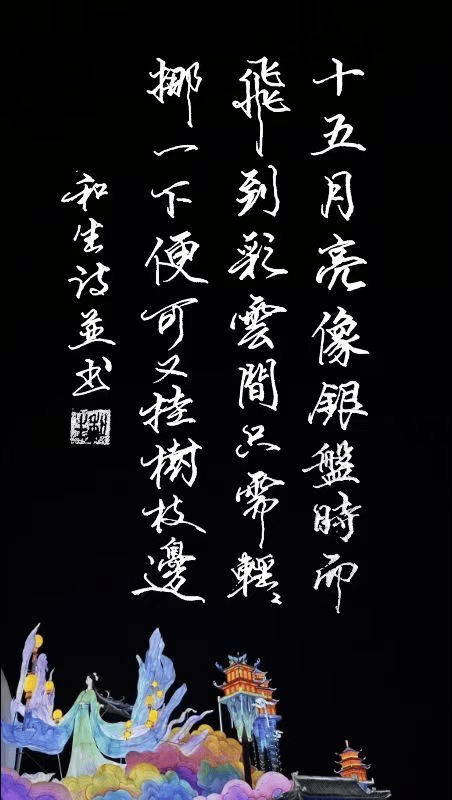 十五月亮像銀盤時而
飛到彩雲間只需輕々
挪一下便可又挂樹枝邊
和生詩並书